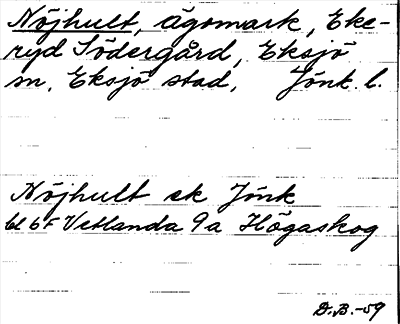 Nöjhult, ägomark, Eke-
ryd Södergård, Eksjö
sn, Eksjö stad, Jönk. l.
Nöjhult ek Jönk
bl 6F Vetlanda 9a Högaskog
D.B.-59